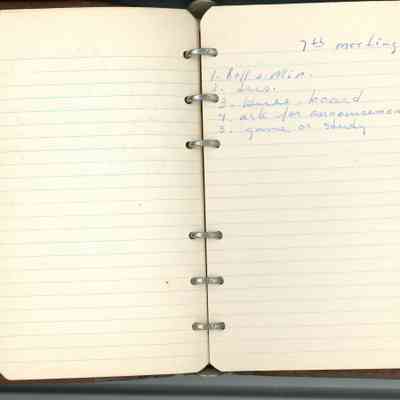 7th meeting
1. Roll & Min.
2. Devo.
3. Buss. board
4. ask for announcemen
5. game or study